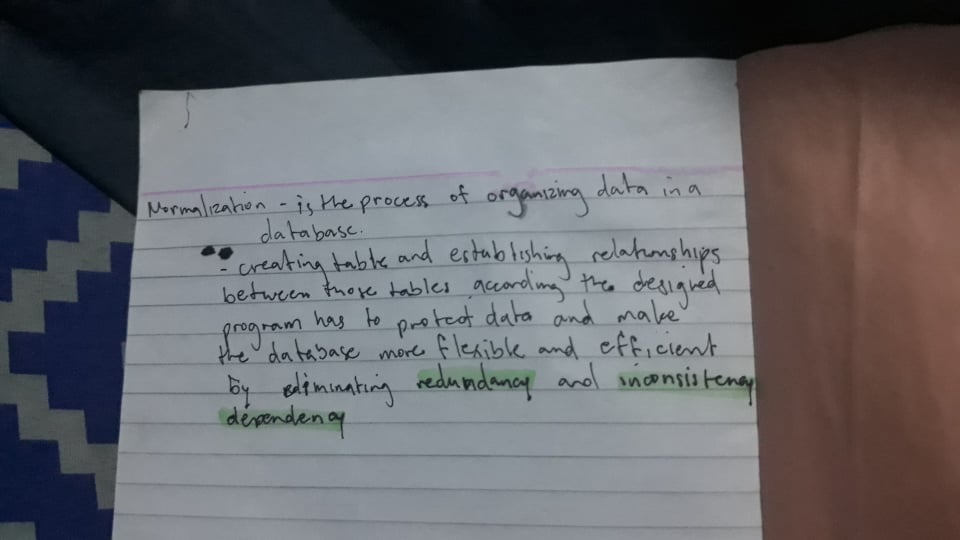 Normalization - is the process of organizing data in a
database.
- creating table and establishing relationships
between those tables according the designed
program has to protect data and make
the database more flexible and efficient
by eliminating redundancy and inconsistency
dependency